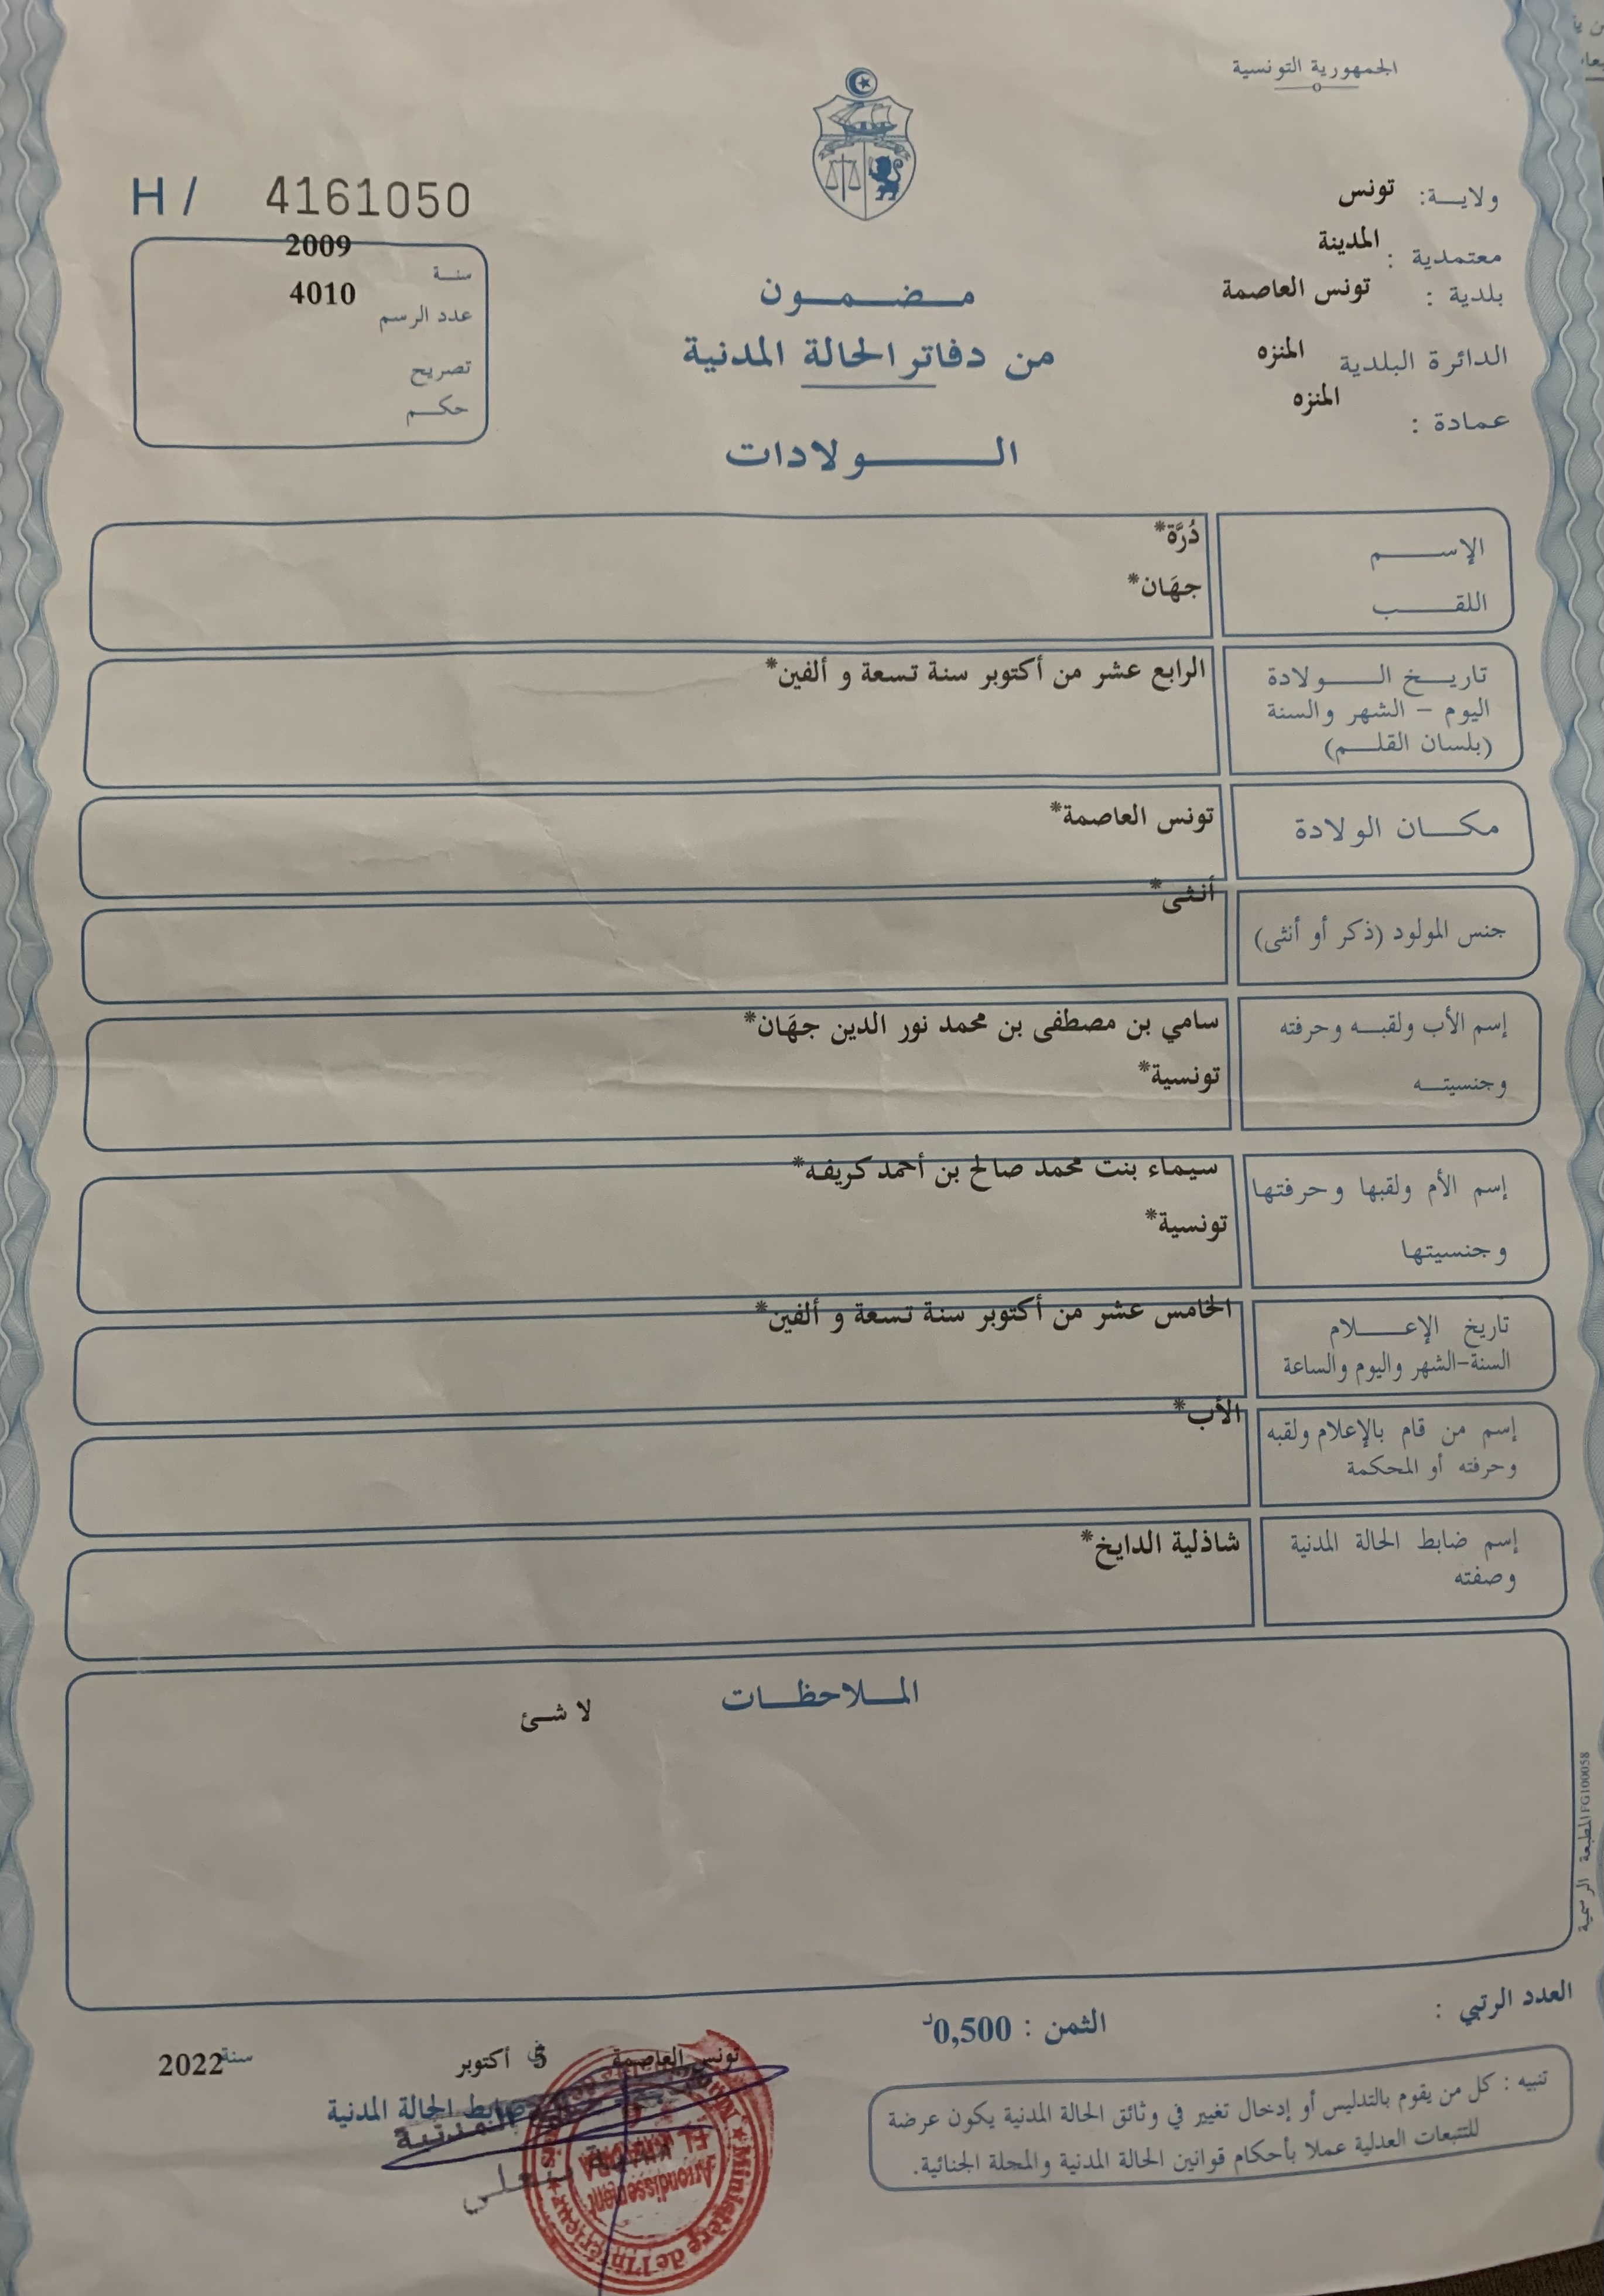 الجمهورية التونسية
H / 4161050
ولاية: تونس
معتمدية : المدينة
بلدية : تونس العاصمة
الدائرة البلدية المنزه
عمادة : المنزه
سنة 2009
عدد الرسم 4010
تصريح
حكم
مضمون
من دفاتر الحالة المدنية
الولادات
الإسم دُرَّة*
اللقب جهَان*
تاريخ الولادة الرابع عشر من أكتوبر سنة تسعة و ألفين*
اليوم - الشهر والسنة
(بلسان القلم)
مكان الولادة تونس العاصمة*
جنس المولود (ذكر أو أنثى) أنثى*
إسم الأب ولقبه وحرفته سامي بن مصطفى بن محمد نور الدين جهَان*
وجنسيته تونسية*
إسم الأم ولقبها وحرفتها سيماء بنت محمد صالح بن أحمد كريفه*
وجنسيتها تونسية*
تاريخ الإعلام الخامس عشر من أكتوبر سنة تسعة و ألفين*
السنة-الشهر واليوم والساعة
إسم من قام بالإعلام ولقبه الأب*
وحرفته أو المحكمة
إسم ضابط الحالة المدنية شاذلية الدايخ*
وصفته
الملاحظات
لا شئ
المطبعة الرسمية FG100058
العدد الرتبي :
الثمن : 0,500د
تونس العاصمة في 5 أكتوبر سنة 2022
ضابط الحالة المدنية
تنبيه : كل من يقوم بالتدليس أو إدخال تغيير في وثائق الحالة المدنية يكون عرضة
للتتبعات العدلية عملا بأحكام قوانين الحالة المدنية والمجلة الجنائية.
Ministère de l'Intérieur
Arrondissement
EL KHADRA